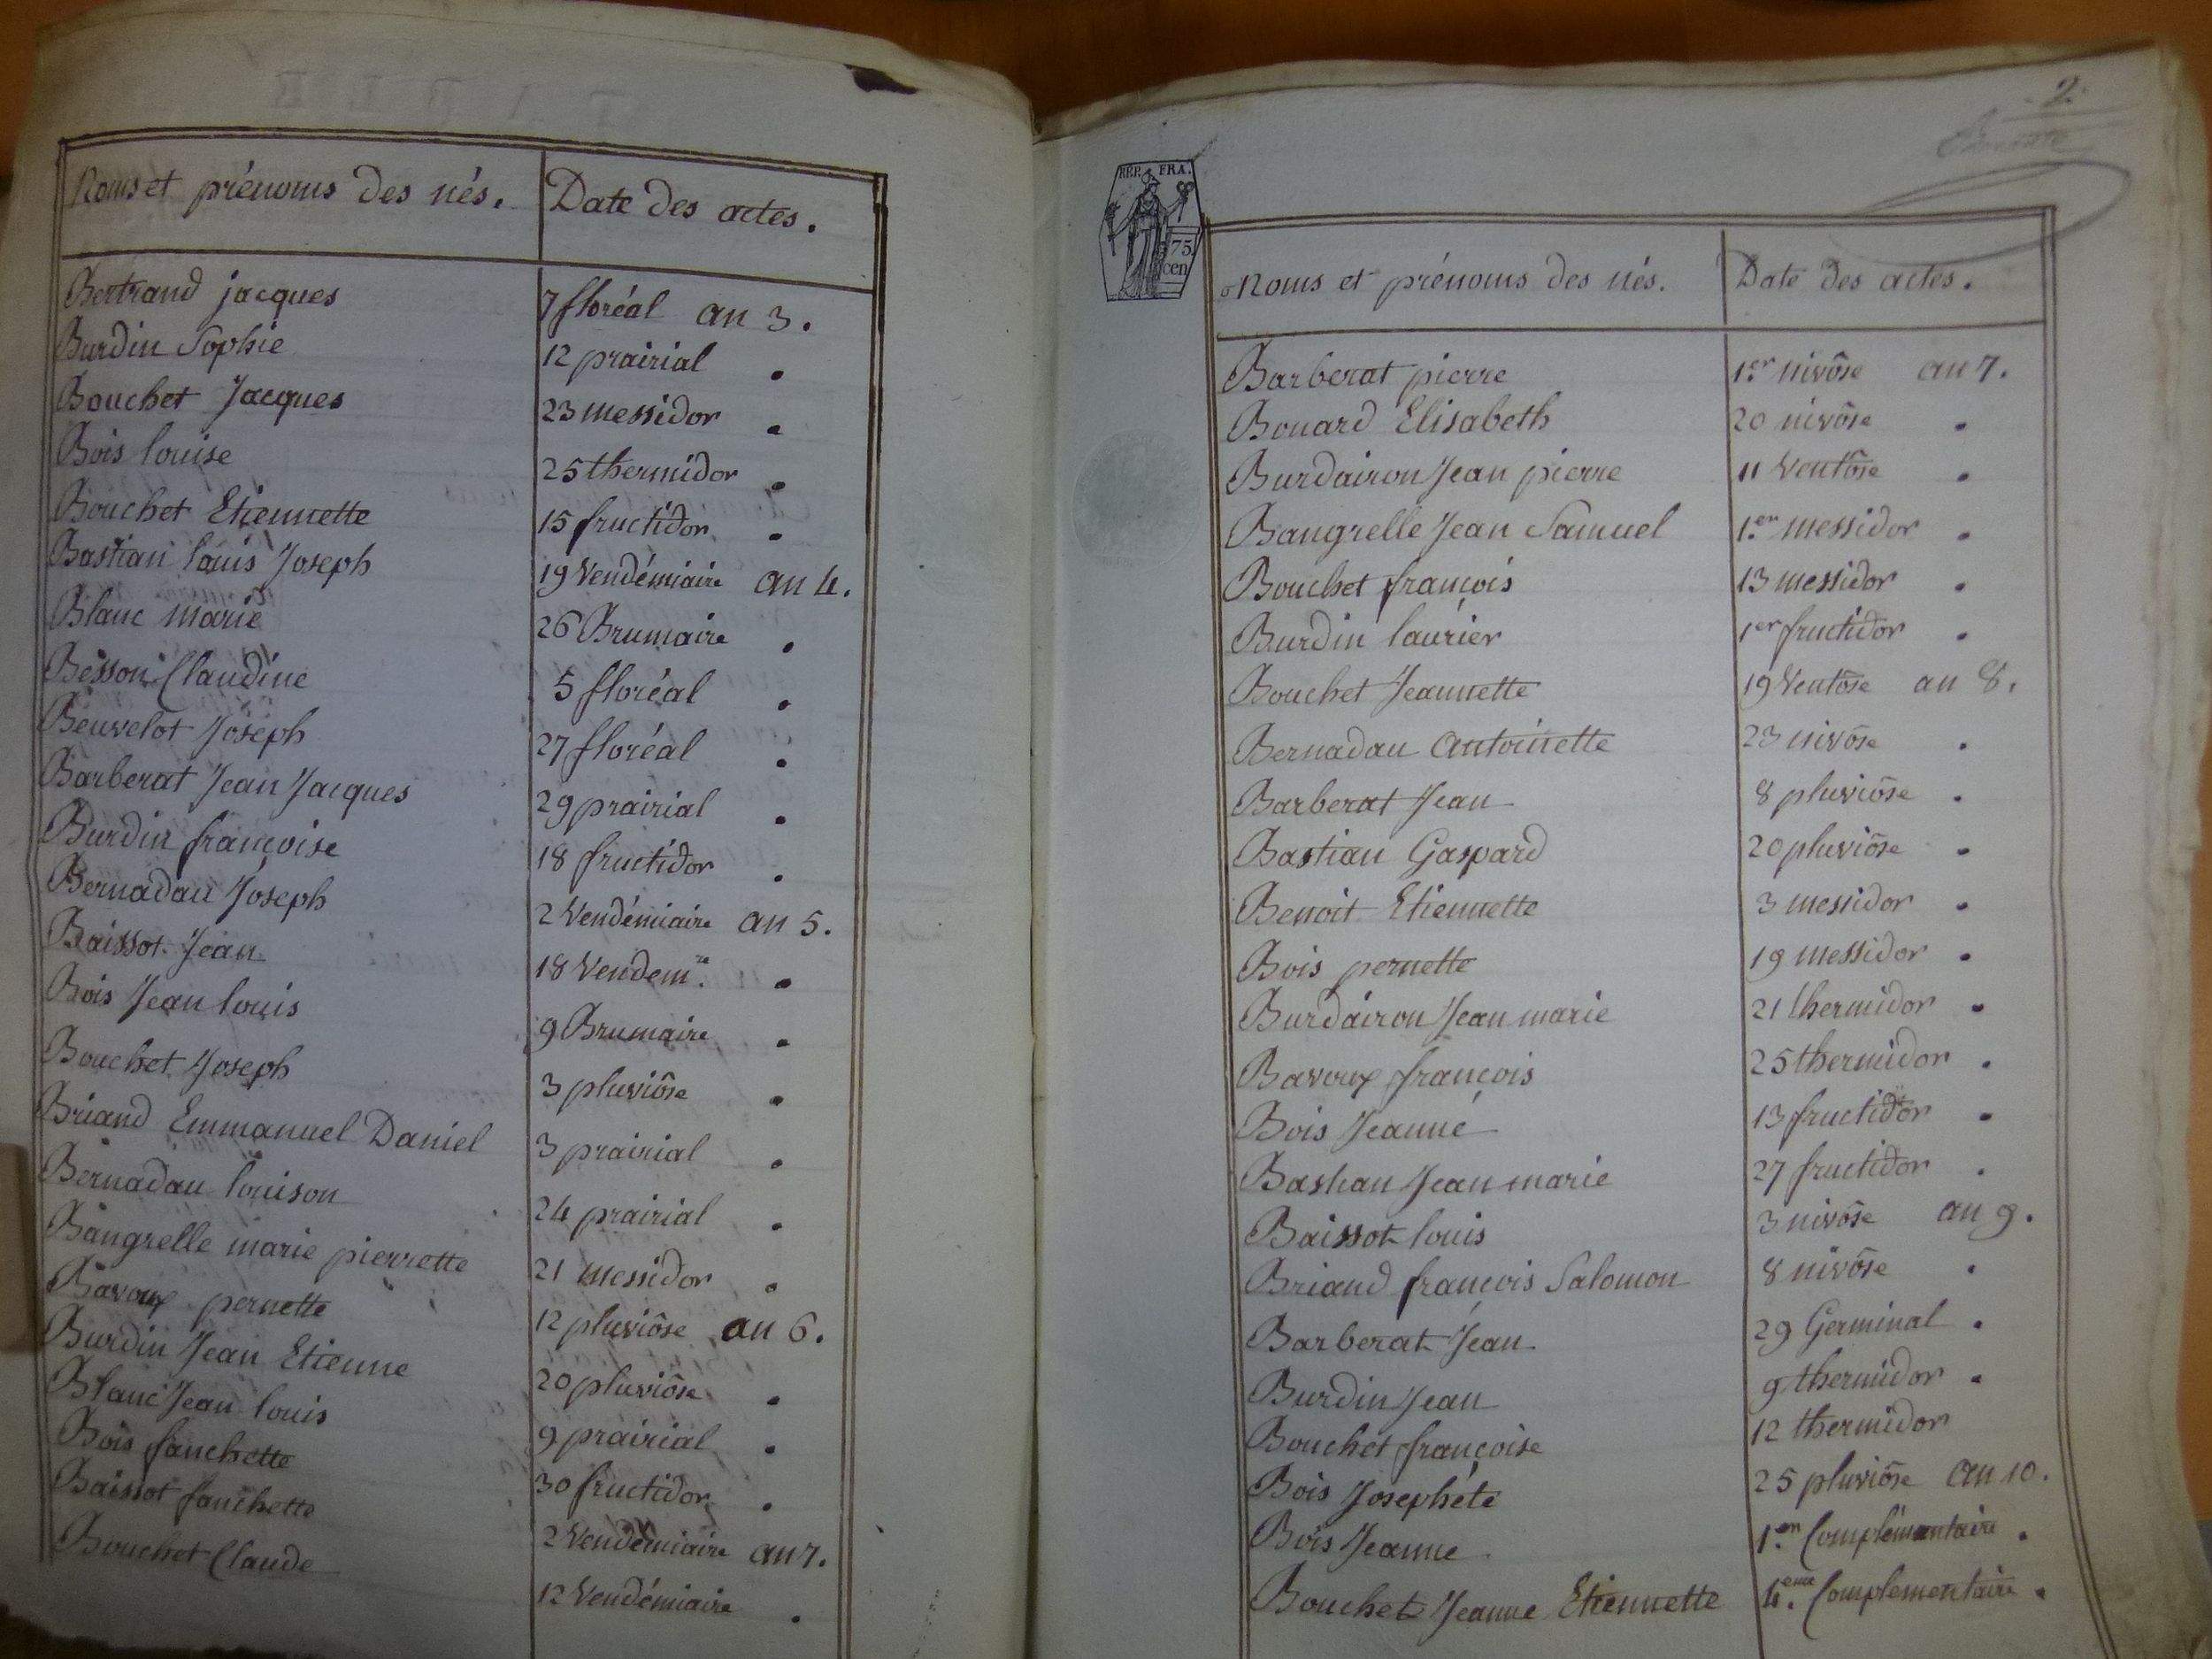 Noms et prénoms des nés. Date des actes.
Bertrand jacques 7 floréal an 3.
Burdin Sophie 12 prairial .
Bouchet Jacques 23 messidor .
Bois louise 25 thermidor .
Bouchet Etiennette 15 fructidor .
Bastian louis Joseph 19 Vendémiaire an 4.
Blanc marie 26 Brumaire .
Besson Claudine 5 floréal .
Beuvelot Joseph 27 floréal .
Barberat Jean Jacques 29 prairial .
Burdin françoise 18 fructidor .
Bernadau Joseph 2 Vendémiaire an 5.
Baissot Jean 18 Vendem.re .
Bois Jean louis 9 Brumaire .
Bouchet Joseph 3 pluviôse .
Briand Emmanuel Daniel 3 prairial .
Bernadau louison 24 prairial .
Bangrelle marie pierrette 21 messidor .
Bavoux pernette 12 pluviôse an 6.
Burdin Jean Etienne 20 pluviôse .
Blanc Jean louis 9 prairial .
Bois fanchette 30 fructidor .
Baissot fanchette 2 Vendémiaire an 7.
Bouchet Claude 12 Vendémiaire .
2.
RÉP. FRA.
75
cen
Noms et prénoms des nés. Date des actes.
Barberat pierre 1.er nivôse an 7.
Bouard Elisabeth 20 nivôse .
Burdairon Jean pierre 11 Ventôse .
Bangrelle Jean Samuel 1.er messidor .
Bouchet françois 13 messidor .
Burdin laurier 1er fructidor .
Bouchet Jeannette 19 Ventôse an 8.
Bernadau Antoinette 23 nivôse .
Barberat Jean 8 pluviôse .
Bastian Gaspard 20 pluviôse .
Benoit Etiennette 3 messidor .
Bois pernette 19 messidor .
Burdairon Jean marie 21 thermidor .
Bavoux françois 25 thermidor .
Bois Jeanne 13 fructidor .
Bastian Jean marie 27 fructidor .
Baissot louis 3 nivôse an 9.
Briand françois Salomon 8 nivôse .
Barberat Jean 29 Germinal .
Burdin Jean 9 thermidor .
Bouchet françoise 12 thermidor
Bois Josephete 25 pluviôse an 10.
Bois Jeanne 1.er Complémentaire .
Bouchet Jeanne Etiennette 4.eme Complementaire .